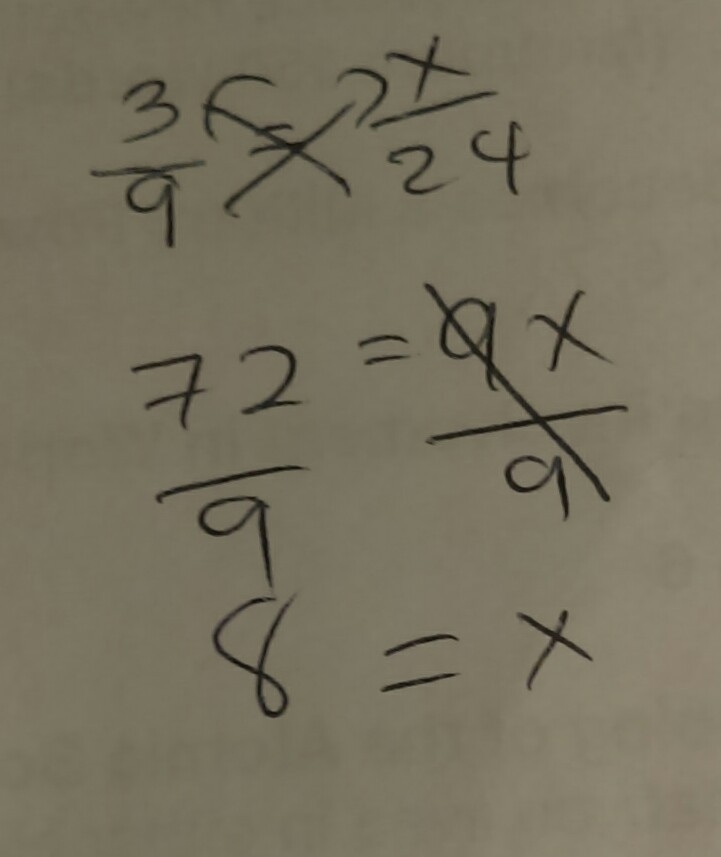 3/9 = x/24
72/9 = 9x/9
8 = x